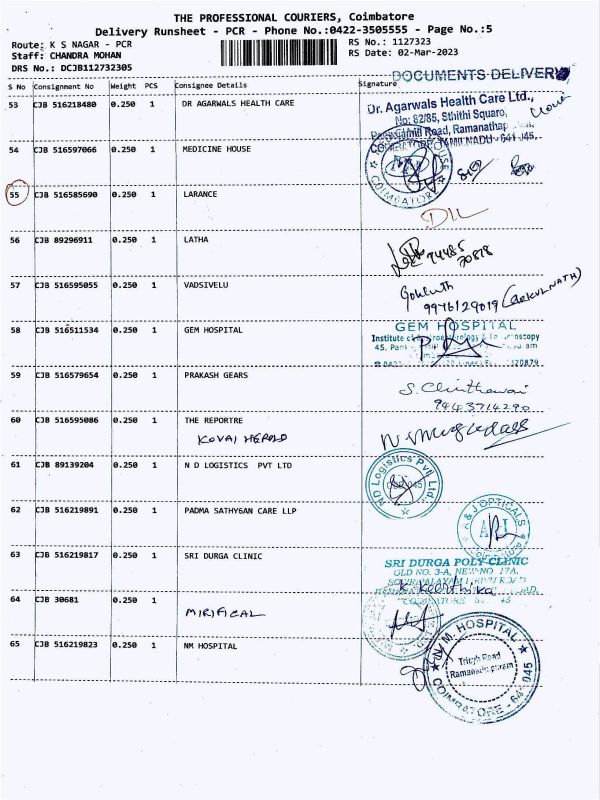 THE PROFESSIONAL COURIERS, Coimbatore
Delivery Runsheet - PCR - Phone No.:0422-3505555 - Page No.:5
Route: K S NAGAR - PCR RS No.: 1127323
Staff: CHANDRA MOHAN RS Date: 02-Mar-2023
DRS No.: DCJB112732305
DOCUMENTS DELIVERY
S No Consignment No Weight PCS Consignee Details Signature
53 CJB 516218480 0.250 1 DR AGARWALS HEALTH CARE
Dr. Agarwals Health Care Ltd.,
No: 82/85, Sthithi Square,
Road, Ramanathap
TAMIL NADU - 641 045.
54 CJB 516597066 0.250 1 MEDICINE HOUSE
HOUSE
COIMBATORE
55 CJB 516585690 0.250 1 LARANCE
56 CJB 89296911 0.250 1 LATHA
94485
70878
57 CJB 516595055 0.250 1 VADSIVELU
Gokulnath
9976129019 (GOKULNATH)
58 CJB 516511534 0.250 1 GEM HOSPITAL
GEM HOSPITAL
Institute of
45,
59 CJB 516579654 0.250 1 PRAKASH GEARS
9443714290
60 CJB 516595086 0.250 1 THE REPORTRE
KOVAI HEROLD
61 CJB 89139204 0.250 1 N D LOGISTICS PVT LTD
ND Logistics Pvt Ltd.
62 CJB 516219891 0.250 1 PADMA SATHY6AN CARE LLP
A & J OPTICALS
63 CJB 516219817 0.250 1 SRI DURGA CLINIC
SRI DURGA POLY CLINIC
OLD NO. 3-A, NEW NO 17A,
64 CJB 30681 0.250 1
MIRIFICAL
65 CJB 516219823 0.250 1 NM HOSPITAL
N.M. HOSPITAL
Trichy Road
Ramanathapuram
COIMBATORE - 641 045